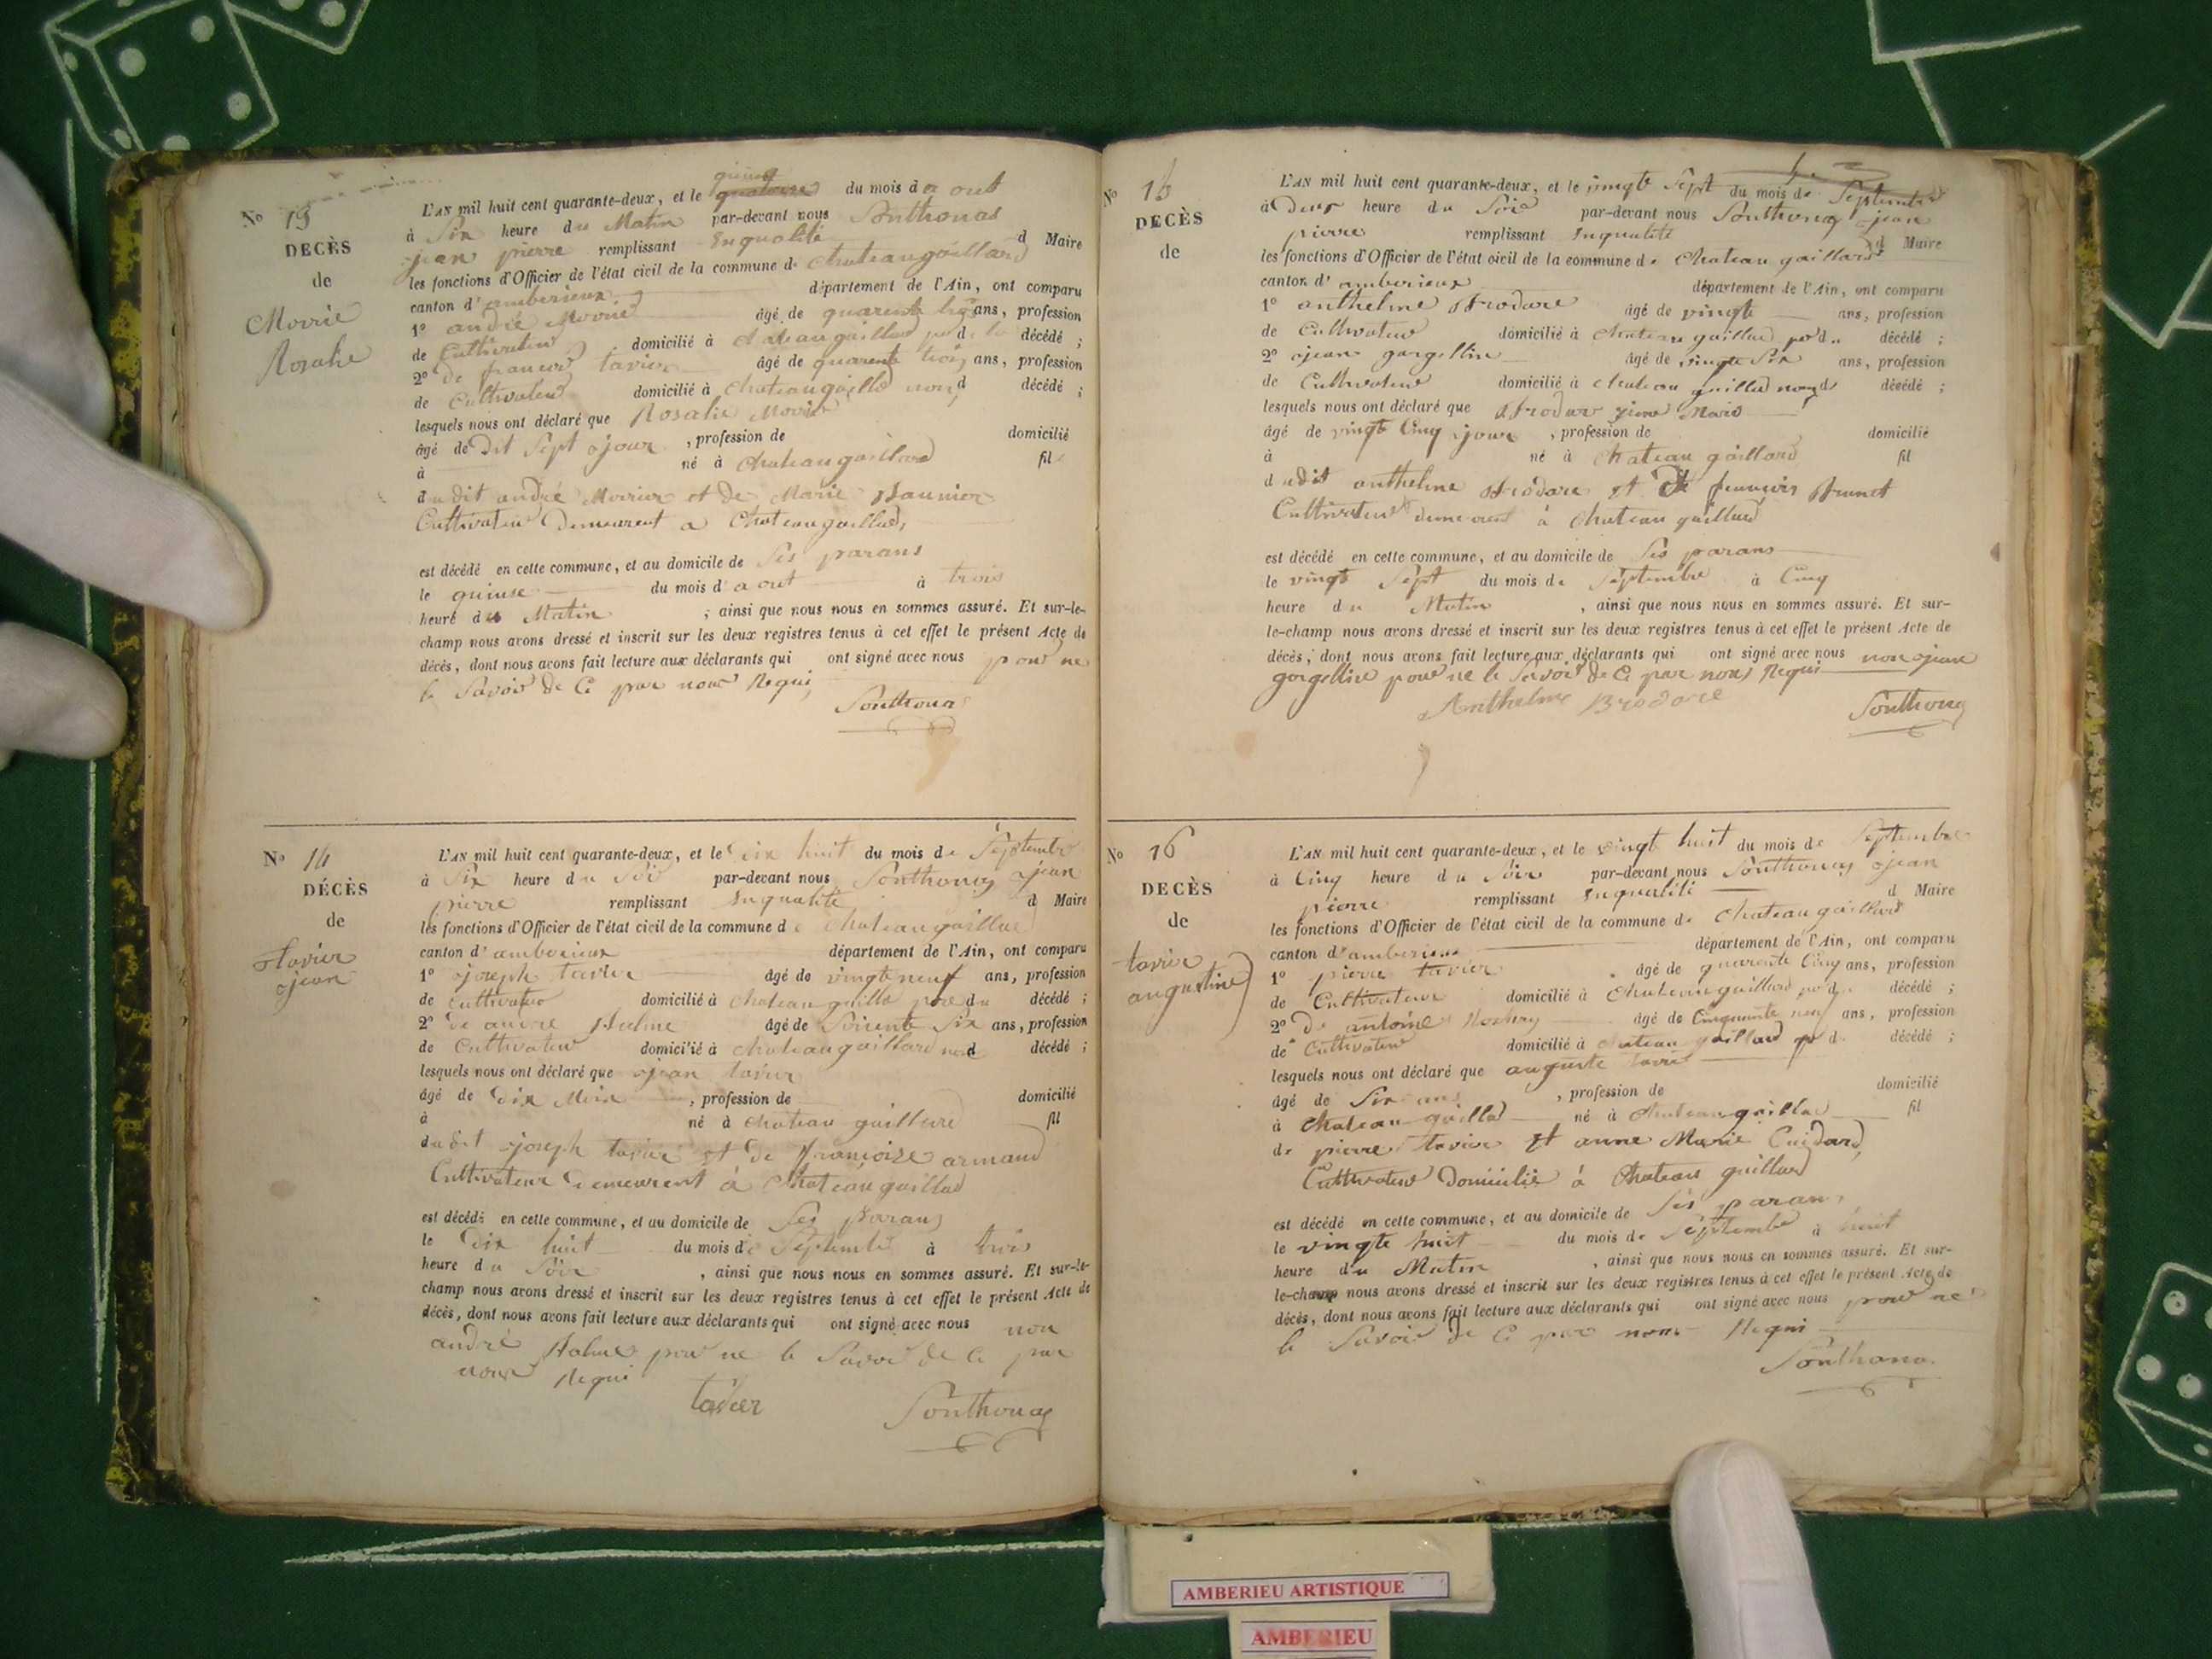 No 13
DECÈS
de
Movrié
Rosalie
L'AN mil huit cent quarante-deux, et le quinze quatorze du mois d a out
à Six heure du Matin par-devant nous Sonthonas
jean pierre remplissant Enqualité d Maire
les fonctions d'Officier de l'état civil de la commune de Chateaugaillard
canton d'amberieux département de l'Ain, ont comparu
1° andré Movrié âgé de quarente ans, profession
de Cultivateur domicilié à Chateaugaillard d décédé ;
2° de francois tavier âgé de quarente trois ans, profession
de Cultivateur domicilié à Chateaugaillard non d décédé ;
lesquels nous ont déclaré que Rosalie Movrié
âgé de Dit Sept jour , profession de domicilié
à né à Chateaugaillard fil
du dit andré Movrier et de Marie
Cultivateur Demeurent a Chateaugaillard,
est décédé en cette commune, et au domicile de Ses parans
le quinse du mois d'aout à trois
heure du Matin ; ainsi que nous nous en sommes assuré. Et sur-le-
champ nous avons dressé et inscrit sur les deux registres tenus à cet effet le présent Acte de
décès, dont nous avons fait lecture aux déclarants qui ont signé avec nous pour ne
le Savoir de Ce par nous Requi
Sonthonas
No 14
DÉCÈS
de
tavier
jean
L'AN mil huit cent quarante-deux, et le dix huit du mois de Septembre
à Six heure du Soir par-devant nous Sonthonas jean
pierre remplissant Enqualité d Maire
les fonctions d'Officier de l'état civil de la commune de Chateaugaillard
canton d'amberieux département de l'Ain, ont comparu
1° joseph tavier âgé de vingt neuf ans, profession
de Cultivateur domicilié à Chateaugaillard du décédé ;
2° de andre âgé de Soicente Six ans, profession
de Cultivateur domicilié à Chateaugaillard non d décédé ;
lesquels nous ont déclaré que jean tavier
âgé de Dix Mois , profession de domicilié
à né à Chateau gaillard fil
du dit joseph tavier et de francoise armand
Cultivateur Demeurent à Chateaugaillard
est décédé en cette commune, et au domicile de Ses parans
le Dix huit du mois de Septembre à trois
heure du Soir , ainsi que nous nous en sommes assuré. Et sur-le-
champ nous avons dressé et inscrit sur les deux registres tenus à cet effet le présent Acte de
décès, dont nous avons fait lecture aux déclarants qui ont signé avec nous non
andré pour ne le Savoir de Ce par
nous Requi
tavier Sonthonas
No 15
DECÈS
de
L'AN mil huit cent quarante-deux, et le vingt Sept du mois de Septembre
à Deux heure du Soir par-devant nous Sonthonas jean
pierre remplissant Enqualité d Maire
les fonctions d'Officier de l'état civil de la commune de Chateau gaillard
canton d'amberieux département de l'Ain, ont comparu
1° anthelme Brodare âgé de vingt ans, profession
de Cultivateur domicilié à Chateau gaillard d décédé ;
2° jean gorgellin âgé de vingt Six ans, profession
de Cultivateur domicilié à Chateau gaillard non d décédé ;
lesquels nous ont déclaré que Brodare
âgé de vingt Cinq jour , profession de domicilié
à né à Chateau gaillard fil
du dit anthelme Brodare et de francoise Brunet
Cultivateur demeurent à Chateau gaillard
est décédé en cette commune, et au domicile de Ses parans
le vingt Sept du mois de Septembre à Cinq
heure du Matin , ainsi que nous nous en sommes assuré. Et sur-
le-champ nous avons dressé et inscrit sur les deux registres tenus à cet effet le présent Acte de
décès, dont nous avons fait lecture aux déclarants qui ont signé avec nous non jean
gorgellin pour ne le Savoir de Ce par nous Requi
Anthelme Brodare Sonthonas
No 16
DECÈS
de
tavier
augustine
L'AN mil huit cent quarante-deux, et le vingt huit du mois de Septembre
à Cinq heure du Soir par-devant nous Sonthonas jean
pierre remplissant Enqualité d Maire
les fonctions d'Officier de l'état civil de la commune de Chateaugaillard
canton d'amberieux département de l'Ain, ont comparu
1° pierre tavier âgé de quarente Cinq ans, profession
de Cultivateur domicilié à Chateaugaillard d décédé ;
2° de antoine âgé de Cinquante neuf ans, profession
de Cultivateur domicilié à Chateau gaillard d décédé ;
lesquels nous ont déclaré que auguste tavier
âgé de Six ans , profession de domicilié
à Chateau gaillard né à Chateaugaillard fil
de pierre tavier et anne Marie Cuidard,
Cultivateur Domicilié à Chateau gaillard
est décédé en cette commune, et au domicile de Ses parans
le vingte huit du mois de Septembre à huit
heure du Matin , ainsi que nous nous en sommes assuré. Et sur-
le-champ nous avons dressé et inscrit sur les deux registres tenus à cet effet le présent Acte de
décès, dont nous avons fait lecture aux déclarants qui ont signé avec nous pour ne
le Savoir de Ce par nous Requi
Sonthonas
AMBERIEU ARTISTIQUE
AMBERIEU